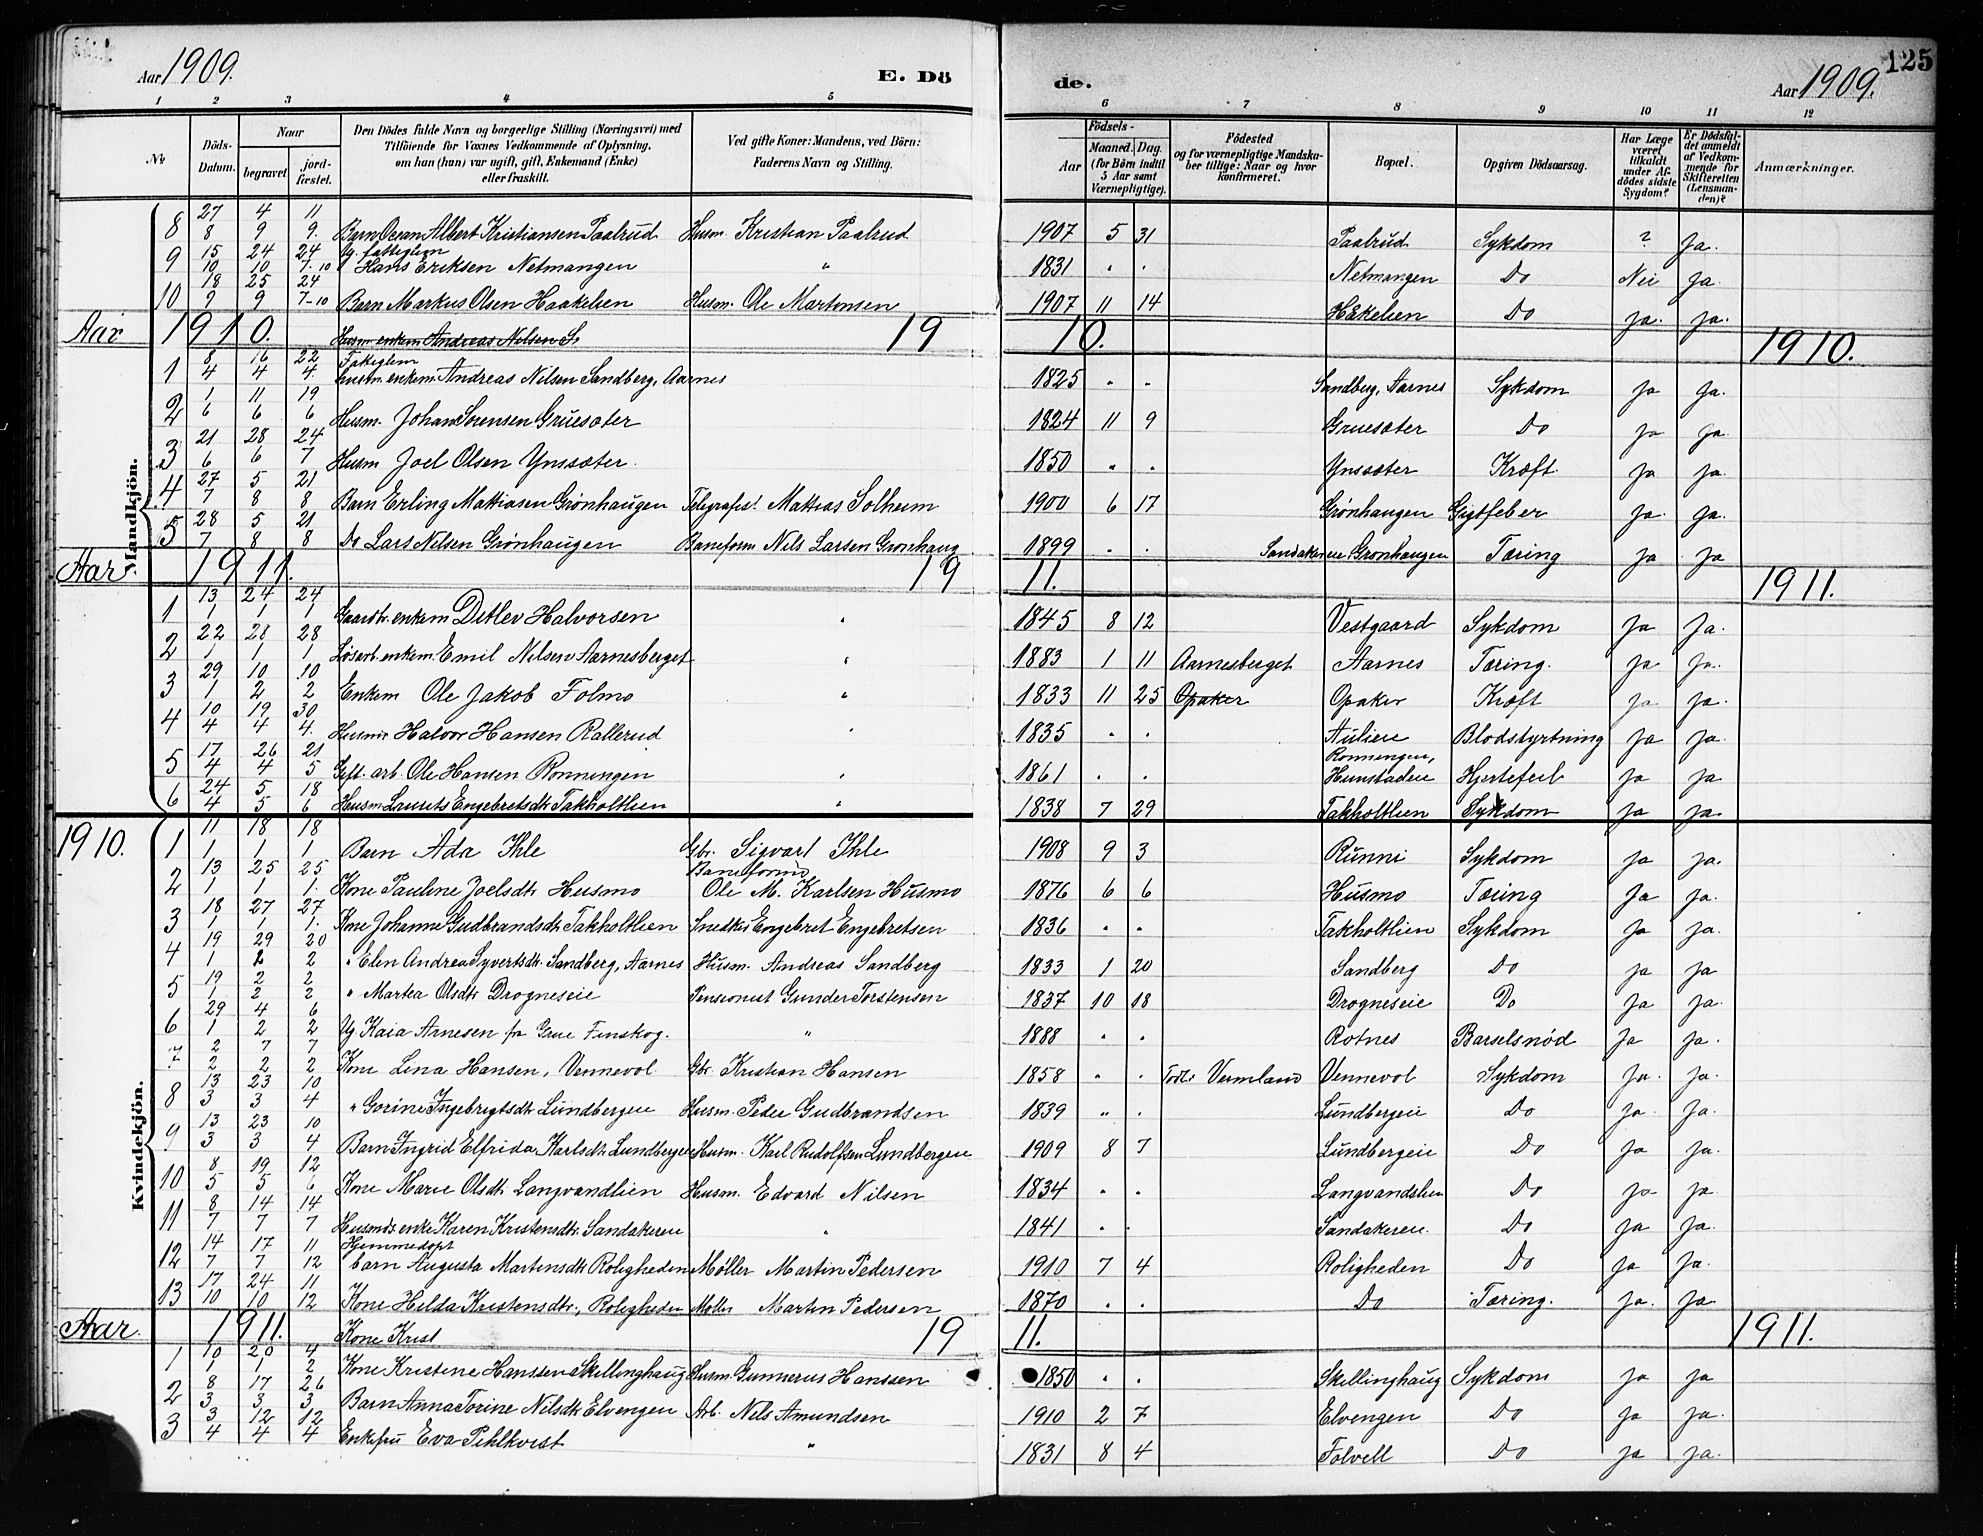 125
Aar 1909. E. Dö de. Aar 1909.
1 2 3 4 5 6 7 8 9 10 11 12
No Döds-Datum. Naar begravet jord-fæstet. Den Dödes fulde Navn og borgerlige Stilling (Næringsvei) med Tilföiende for Voxnes Vedkommende af Oplysning, om han (hun) var ugift, gift, Enkemand (Enke) eller fraskilt. Ved gifte Koner: Mandens, ved Börn: Faderens Navn og Stilling. Födsels- Aar Maaned. Dag. (for Börn indtil 5 Aar samt Værnepligtige). Födested og for værnepligtige Mandskaber tillige: Naar og hvor konfirmeret. Bopæl. Opgiven Dödsaarsag. Har Læge været tilkaldt under Afdödes sidste Sygdom? Er Dödsfaldet anmeldt af Vedkommende for Skifteretten (Lensmanden)? Anmærkninger.
Mandkjön.
8 27/8 4/9 11/9. Barn Oscar Albert Kristiansen Paalrud Husm. Kristian Paalrud 1907 5 31 Paalrud Sykdom ? Ja.
9 15/10 24/10 24/7-10 Ug. fattiglem Hans Eriksen Netmangen " 1831 . . Netmangen Do Nei Ja.
10 18/9 25/9 24/7-10 Barn Markus Olsen Haakelien Husm. Ole Martonsen 1907 11 14 Hækelien Do ja. ja.
Aar 1910. Husm. enkem Andreas Nilsen S. 1910. 1910.
1 8/4 16/4 22/4. Fatiglem husm. enkem. Andreas Nilsen Sandberg, Aarnes 1825 . . Sandberg, Aarnes Sykdom ja ja.
2 1/6 11/6 19/6 Husm. Johan Sorensen Gruesæter 1824 11 9 Gruesæter Do ja ja.
3 21/6 28/6 24/7 Husm Joel Olsen Ynssæter. 1850 . . Ynssæter Kræft. ja ja.
4 27/7 5/8 21/8 Barn Erling Mattiasen Grønhaugen Telegrafist Mattias Solheim 1900 6 17 Grønhaugen Gigtfeber ja. ja.
5 28/7 5/8 21/8 Do Lars Nilsen Grønhaugen Baneform Nils Larsen Grønhaug 1899 . . Sandakereie Grønhaugen Tæring ja ja
Aar. 1911. 1911. 1911.
1 13/1 24/1 24/1 Gaardbr. enkem Detlev Halvorsen " 1845 8 12 Vestgaard Sykdom ja ja.
2 22/1 28/1 28/1 Løsarb. enkem. Emil Nilsen Aarnesberget " 1883 1 11 Aarnesberget Aarnes Tæring. ja ja.
3 29/1 10/2 10/2 Enkem Ole Jakob Folmo " 1833 11 25 Opaker Opaker Kræft ja. ja.
4 10/4 19/4 30/4. Husmd Halvor Hansen Rallerud " 1835 . . Aulieie Blodstyrtning ja ja.
5 17/4 26/4 21/5 Gift. arb. Ole Hansen Ronningen " 1861 . . Ronningen, Hunstadeie Hjertefeil ja ja
6 24/4 5/5 18/6 Husm Laurits Engebretsdtr Takholtlien " 1838 7 29 Takholtlien Sykdom ja ja.
Kvindekjön.
1910. 1 11/1 18/1 18/1 Barn Ada Ihle Gbr. Sigvart Ihle 1908 9 3 Runni Sykdom ja ja.
2 13/1 25/1 25/1. Kone Pauline Joelsdtr Husmo Baneformd Ole M. Karlsen Husmo 1876 6 6 Husmo Tæring ja ja.
3 18/1 27/1 27/1. Kone Johanne Gudbrandsdtr Takholtlien Snedker Engebret Engebretsen 1836 . . Takholtlien Sykdom ja ja.
4 19/1 29/1 20/2 " Elen Andrea Syvertsdtr. Sandberg, Aarnes Husm. Andreas Sandberg 1833 1 20 Sandberg Do ja ja.
5 19/1 2/2 2/2 " Martea Olsdtr Drogneseie Pensionist Gunder Torstensen 1837 10 18 Drogneseie Do ja ja.
6 29/1 4/2 6/2 Ug Kaia Arnesen fra Grue Finskog. " 1888 . . Rotnes Barselsnød ja ja.
7 2/2 7/2 7/2 Kone Lina Hansen, Vennevol Gbr. Kristian Hansen 1858 . . Vermland Vennevol Sykdom ja. ja.
8 13/3 23/3 10/4 " Gorine Ingebregtsdtr Lundbergeie Husm. Peder Gudbrandsen 1839 " . Lundbergeie Do ja. ja.
9 13/3 23/3 10/4 Barn Ingrid Elfrida Karlsdtr Lundbergeie Husm. Karl Rudolfsen Lundbergeie 1909 8 7 Lundbergeie Do ja ja.
10 8/5 19/5 12/6 Kone Marie Olsdtr Langvandlien Husm. Edvard Nilsen 1834 . . Langvandslien Do ja ja
11 8/7 14/7 14/7 Husmds enke Karen Kristensdtr. Sandakereie " 1841 . . Sandakereie. Do ja ja.
12 14/7 17/7 11/12 Hjemmedøpt barn Augusta Martensdtr Roligheden Møller Martin Pedersen 1910 7 4 Roligheden Do ja ja.
13 17/10 24/10 11/12 Kone Helda Kristensdtr., Roligheden Møller Martin Pedersen 1870 . . Do Tæring. ja. ja
Aar. 1911. Kone Krist 1911. 1911.
1 10/1 20/1 4/2 Kone Kristine Hanssen Skillinghaug Husm. Gunnerus Hanssen 1850 . . Skillinghaug Sykdom ja ja
2 8/3 17/3 26/3 Barn Anna Torine Nilsdtr Elvengen Arb. Nils Amundsen 1910 2 7 Elvengen Do ja ja.
3 3/4 12/4 12/4 Enkefru Eva Pihlkvist " 1831 8 4 Folvell Do ja ja.